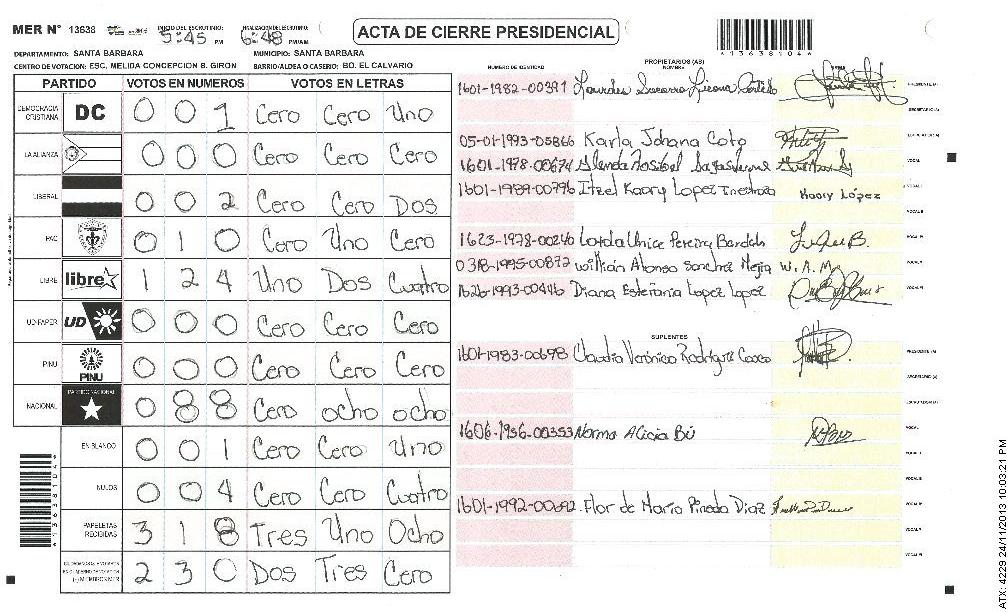 MER N° 13638 INICIO DEL ESCRUTINIO: 5:45 PM FINALIZACION DEL ESCRUTINIO: 6:48 PM/AM
ACTA DE CIERRE PRESIDENCIAL
DEPARTAMENTO: SANTA BARBARA MUNICIPIO: SANTA BARBARA
CENTRO DE VOTACION: ESC. MELIDA CONCEPCION B. GIRON BARRIO/ALDEA O CASERIO: BO. EL CALVARIO
PARTIDO VOTOS EN NUMEROS VOTOS EN LETRAS
DEMOCRACIA CRISTIANA DC 0 0 1 Cero Cero Uno
LA ALIANZA 0 0 0 Cero Cero Cero
LIBERAL 0 0 2 Cero Cero Dos
PAC 0 1 0 Cero Uno Cero
LIBRE libre 1 2 4 Uno Dos Cuatro
UD-FAPER UD 0 0 0 Cero Cero Cero
PINU PINU 0 0 0 Cero Cero Cero
NACIONAL PARTIDO NACIONAL 0 8 8 Cero ocho ocho
EN BLANCO 0 0 1 Cero Cero Uno
NULOS 0 0 4 Cero Cero Cuatro
PAPELETAS RECIBIDAS 3 1 8 Tres Uno Ocho
2 3 0 Dos Tres Cero
4136381044
PROPIETARIOS (AS)
NUMERO DE IDENTIDAD NOMBRE
1601-1982-00391 Lourdes PRESIDENTE (A)
SECRETARIO (A)
05-01-1993-05866 Karla Johana Coto
1601-1978-00674 VOCAL
1601-1989-00796 Itzel Koory Lopez Koory López
1623-1978-00240
0318-1995-00872 Willian Alonso Sanchez Mejia W. A. M
1626-1993-00446 Diana Estefania Lopez Lopez
SUPLENTES
1601-1983-00698 Claudia Verónica Rodriguez PRESIDENTE (A)
SECRETARIO (A)
1606-1956-00353 Norma Alicia Bú VOCAL
1601-1992-00692 Flor de Maria Pineda Diaz
ATX: 4229 24/11/2013 10:03:21 PM